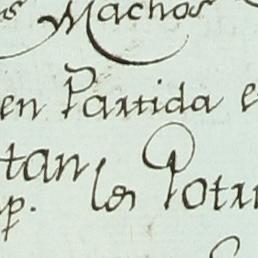 s Machos
en Partida e
tan
p. los Potr